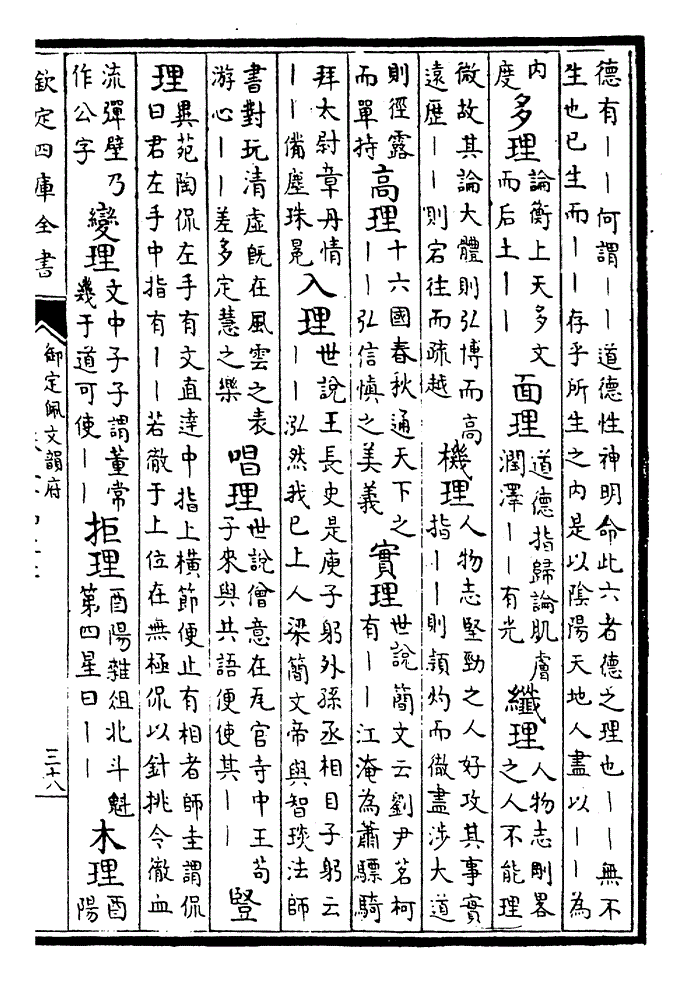 德有｜｜何謂｜｜道德性神明命此六者德之理也｜｜無不
生也已生而｜｜存乎所生之内是以陰陽天地人盡以｜｜為
内
度
多理
論衡上天多文
而后土｜｜
面理
道德指歸論肌膚
潤澤｜｜有光
纖理
人物志剛畧
之人不能理
微故其論大體則弘博而高
遠歴｜｜則宕往而疏越
機理
人物志堅勁之人好攻其事實
指｜｜則頴灼而微盡涉大道
則徑露
而單持
高理
十六國春秋通天下之
｜｜弘信愼之美義
實理
世說簡文云劉尹茗柯
有｜｜江淹為蕭驃騎
拜太尉章丹情
｜｜備塵珠冕
入理
世說王長史是庾子躬外孫丞相目子躬云
｜｜泓然我已上人梁簡文帝與智琰法師
書對玩清虛旣在風雲之表
游心｜｜差多定慧之樂
唱理
世說僧意在瓦官寺中王苟
子來與共語便使其｜｜
豎
理
異苑陶侃左手有文直達中指上横節便止有相者師圭謂侃
曰君左手中指有｜｜若徹于上位在無極侃以針挑令徹血
流彈壁乃
作公字
變理
文中子子謂董常
幾于道可使｜｜
拒理
酉陽雜俎北斗魁
第四星曰｜｜
木理
酉
陽
欽定四庫全書
御定佩文韻府
三十八